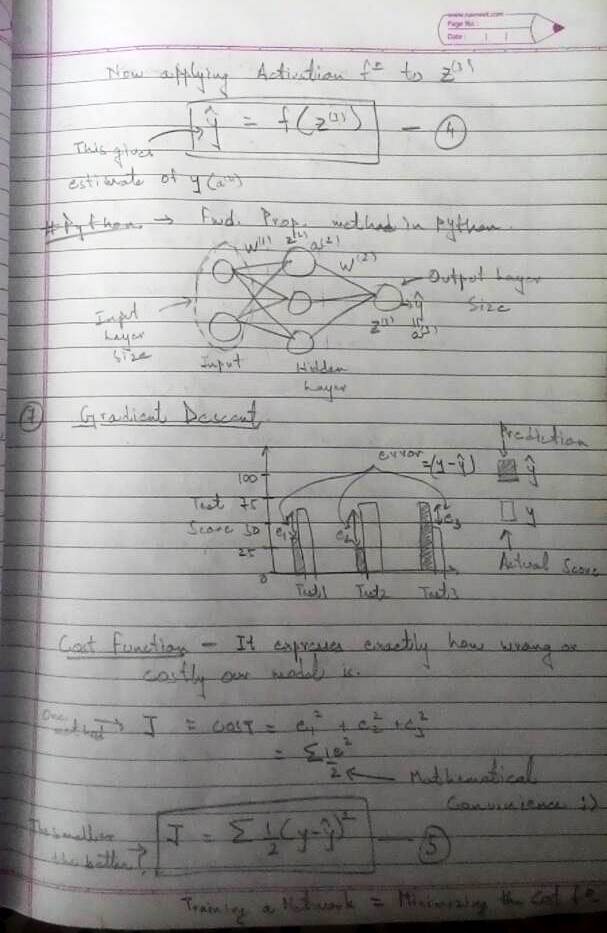 www.navneet.com
Page No.:
Date: | |
Now applying Activation fⁿ to z⁽³⁾
ŷ = f(z⁽³⁾) — ④
This gives
estimate of y (a⁽³⁾)
#Python → Fwd. Prop. method in python.
W⁽¹⁾ z⁽²⁾ a⁽²⁾
W⁽²⁾
Output Layer
Size
Input
Layer
Size
z⁽³⁾ ŷ
a⁽³⁾
Input
Hidden
Layer
⑦ Gradient Descent
Prediction
error = (y-ŷ)
ŷ
100
Test 75
Score 50
25
0
e₁ e₂ e₃
y
Actual Score
Test1 Test2 Test3
Cost Function – It expresses exactly how wrong or
costly our model is.
One method → J = cost = e₁² + e₂² + e₃²
= Σ ½ e²
← Mathematical
Convenience :)
The smaller
the better!
J = Σ ½ (y-ŷ)² — ⑤
Training a Network = Minimizing the Cost fⁿ